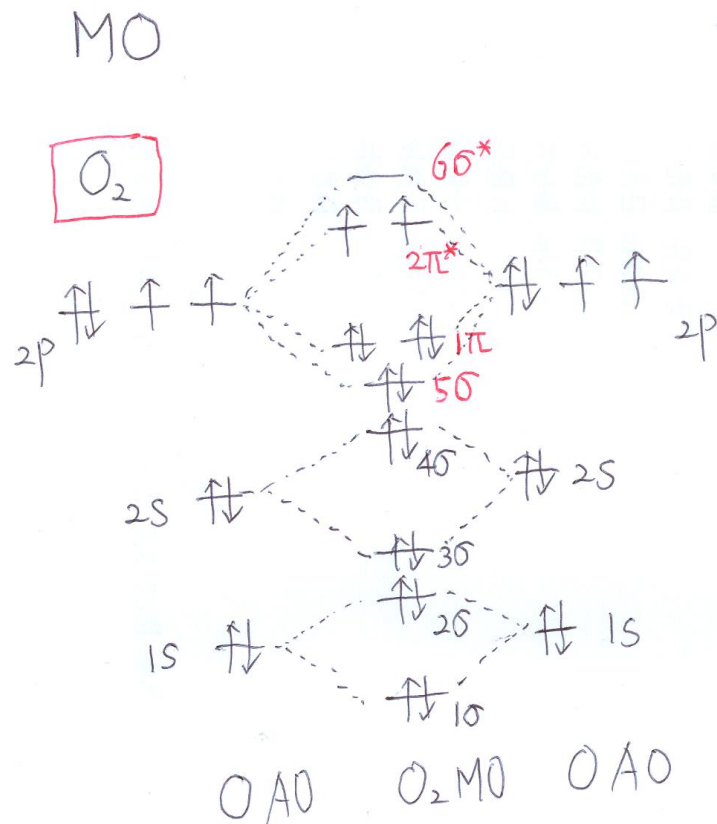 MO
O₂
6σ*
2π*
2p
2p
1π
5σ
4σ
2S
2S
3σ
2σ
1S
1S
1σ
O AO
O₂ MO
O AO